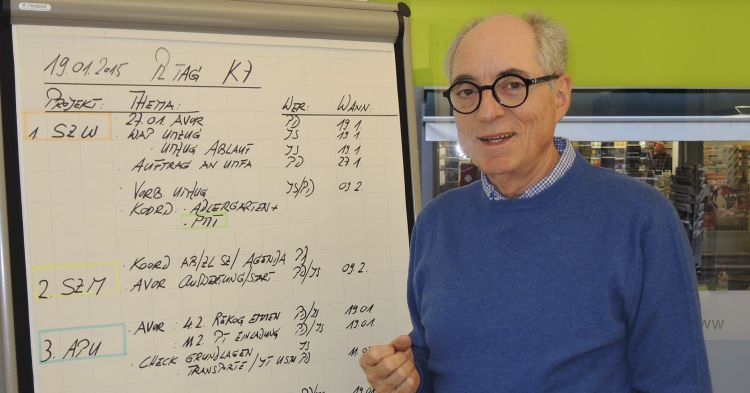 19.01.2015 R TAG K7
PROJEKT: THEMA: WER: WANN:
1. SZW 27.01. AVOR PD 19.1.
WAP UMZUG JS 19.1.
UMZUG ABLAUF JS 19.1.
AUFTRAG AN UMFA PD 27.1
VORB UMZUG JS/PD 09.2.
KOORD · ADLERGARTEN +
· PMT
2. SZM · KOORD AB/ZL SZ/ AGENDA PD
· AVOR AUSWERTUNG/START PD/JS 09.2.
3. APU · AVOR : 4.2. REKOG PD/JS 19.01
: 11.2. PT EINLADUNG PD/JS 19.01.
· CHECK GRUNDLAGEN JS
· TRANSPORTE/JT USM PD 11.
19.01
WW